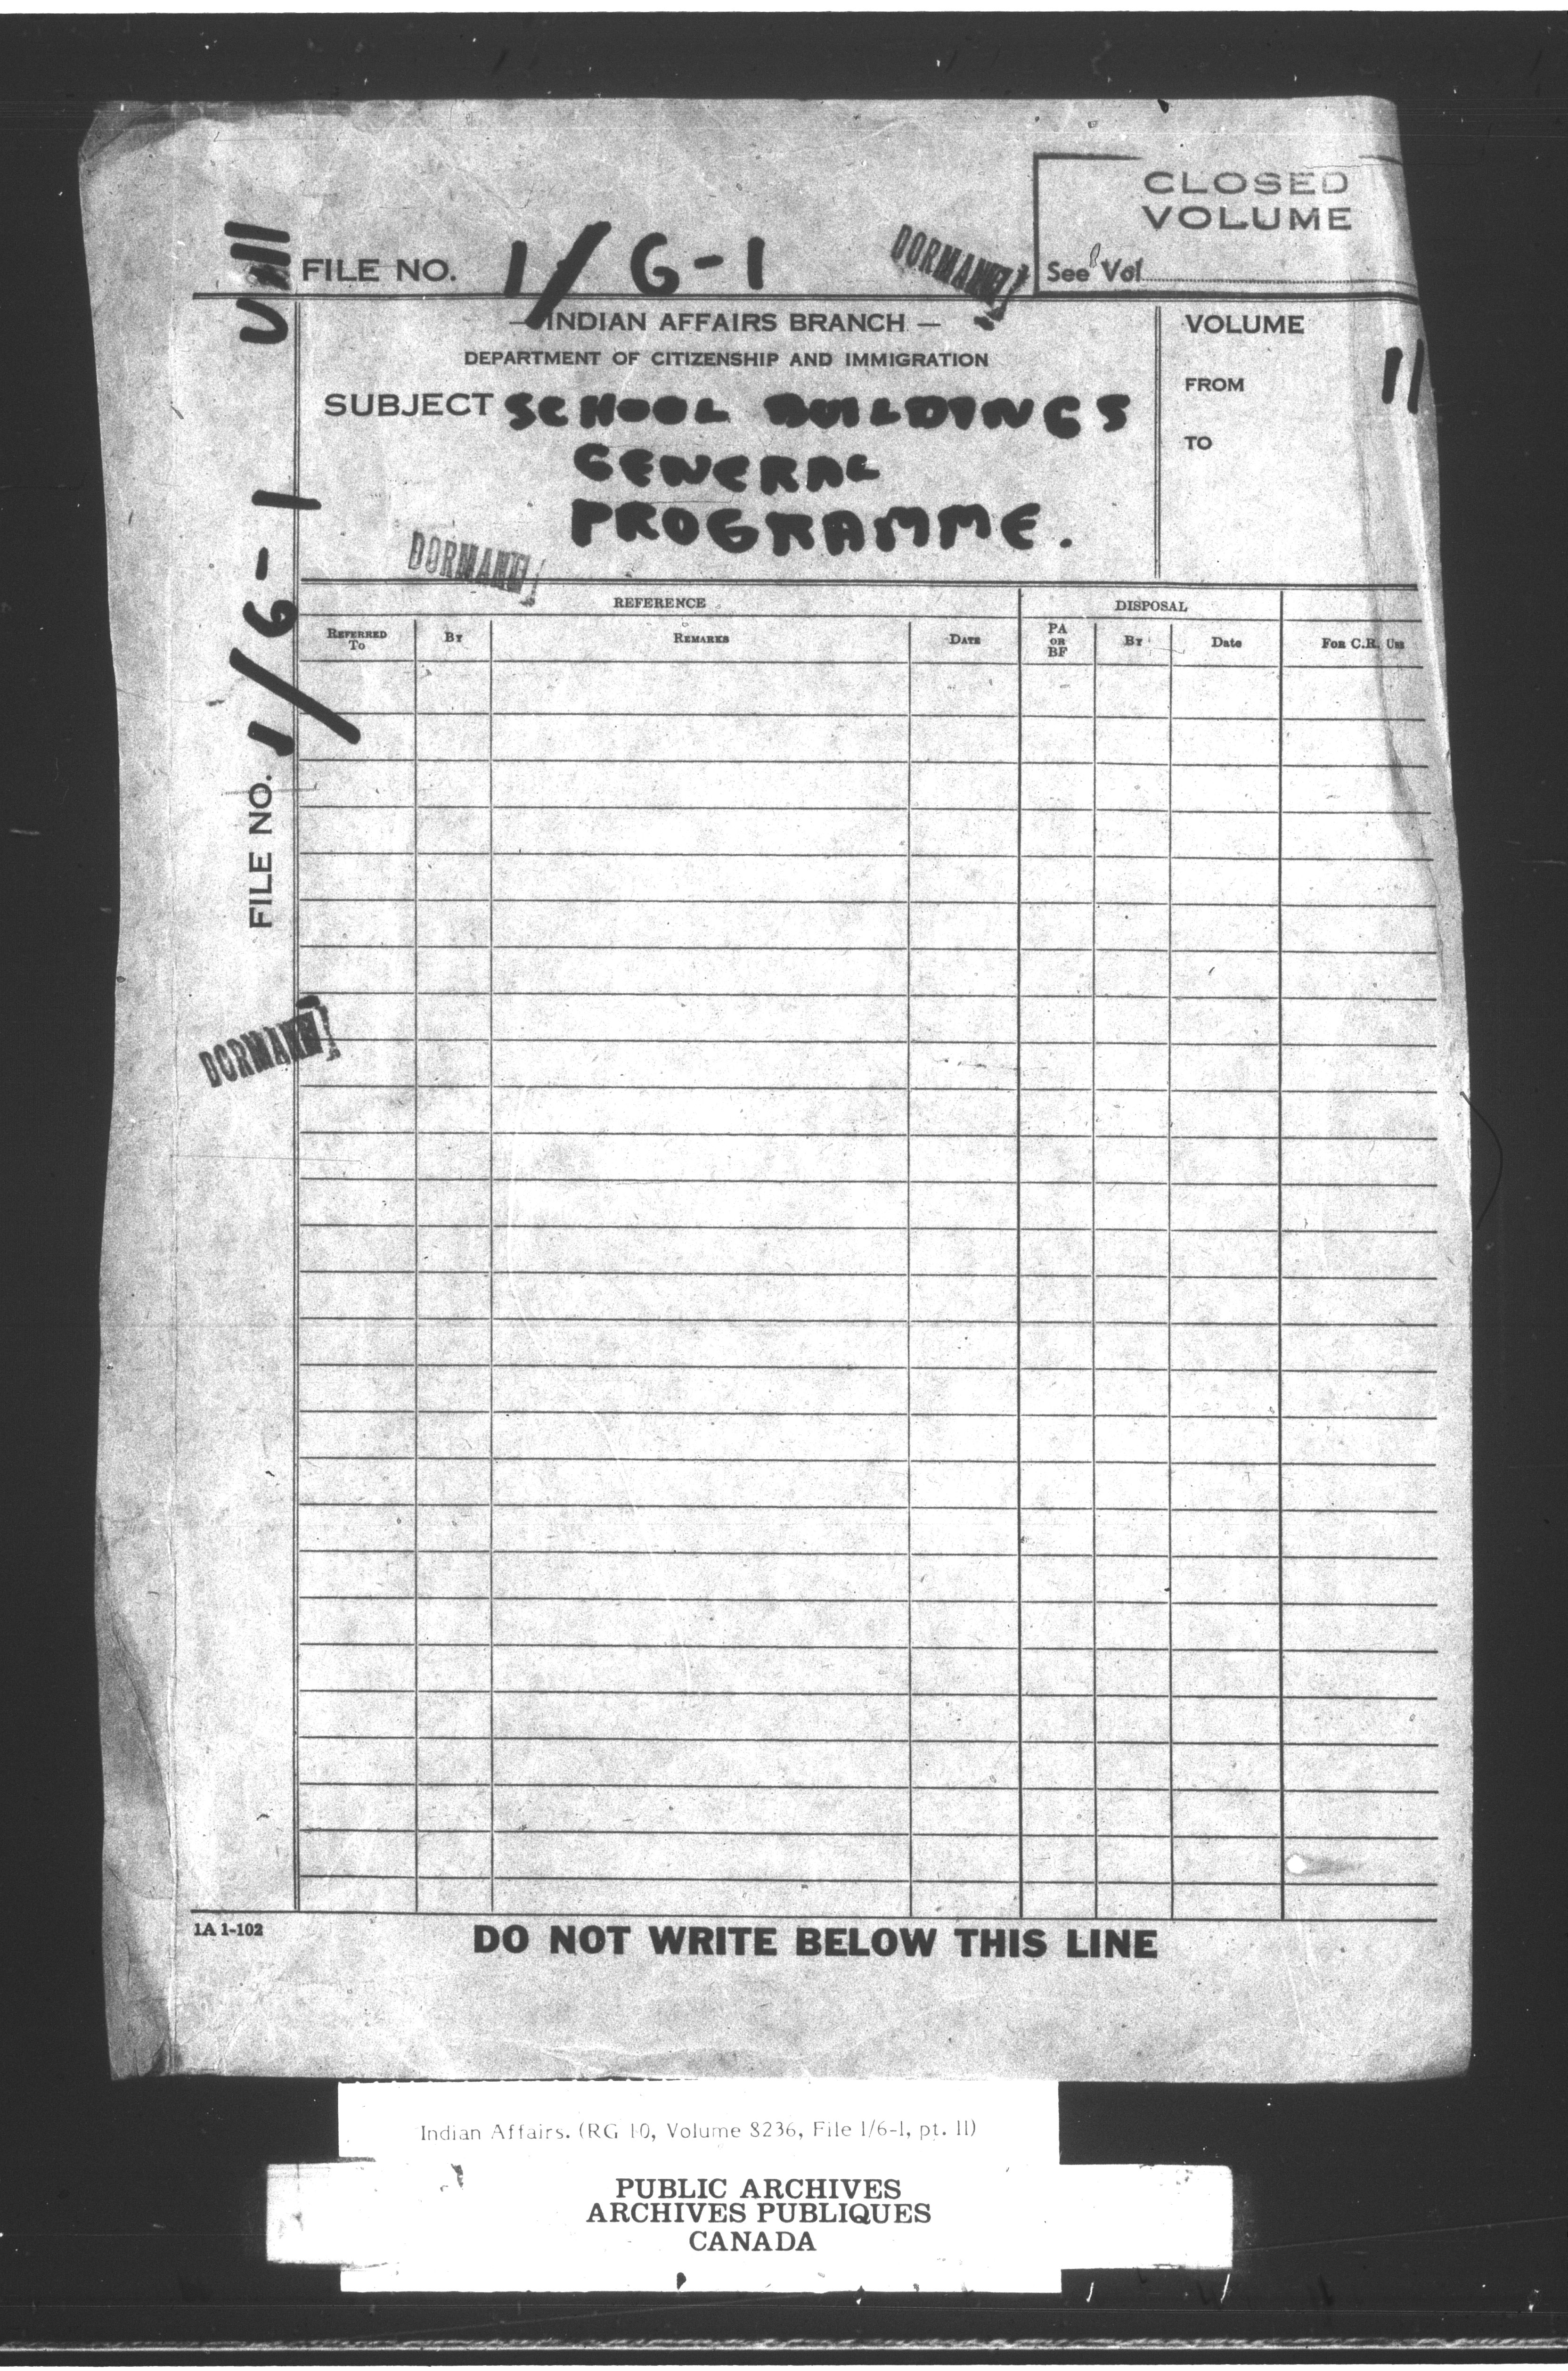 CLOSED
VOLUME
See Vol
FILE NO. 1/6-1
DORMANT
— INDIAN AFFAIRS BRANCH —
DEPARTMENT OF CITIZENSHIP AND IMMIGRATION
SUBJECT SCHOOL BUILDINGS
GENERAL
PROGRAMME.
VOLUME 11
FROM
TO
DORMANT
FILE NO. 1/6-1
DORMANT
REFERENCE
DISPOSAL
REFERRED TO
BY
REMARKS
DATE
PA OR BF
BY
Date
FOR C.R. USE
1A 1-102
DO NOT WRITE BELOW THIS LINE
Indian Affairs. (RG 10, Volume 8236, File 1/6-1, pt. 11)
PUBLIC ARCHIVES
ARCHIVES PUBLIQUES
CANADA